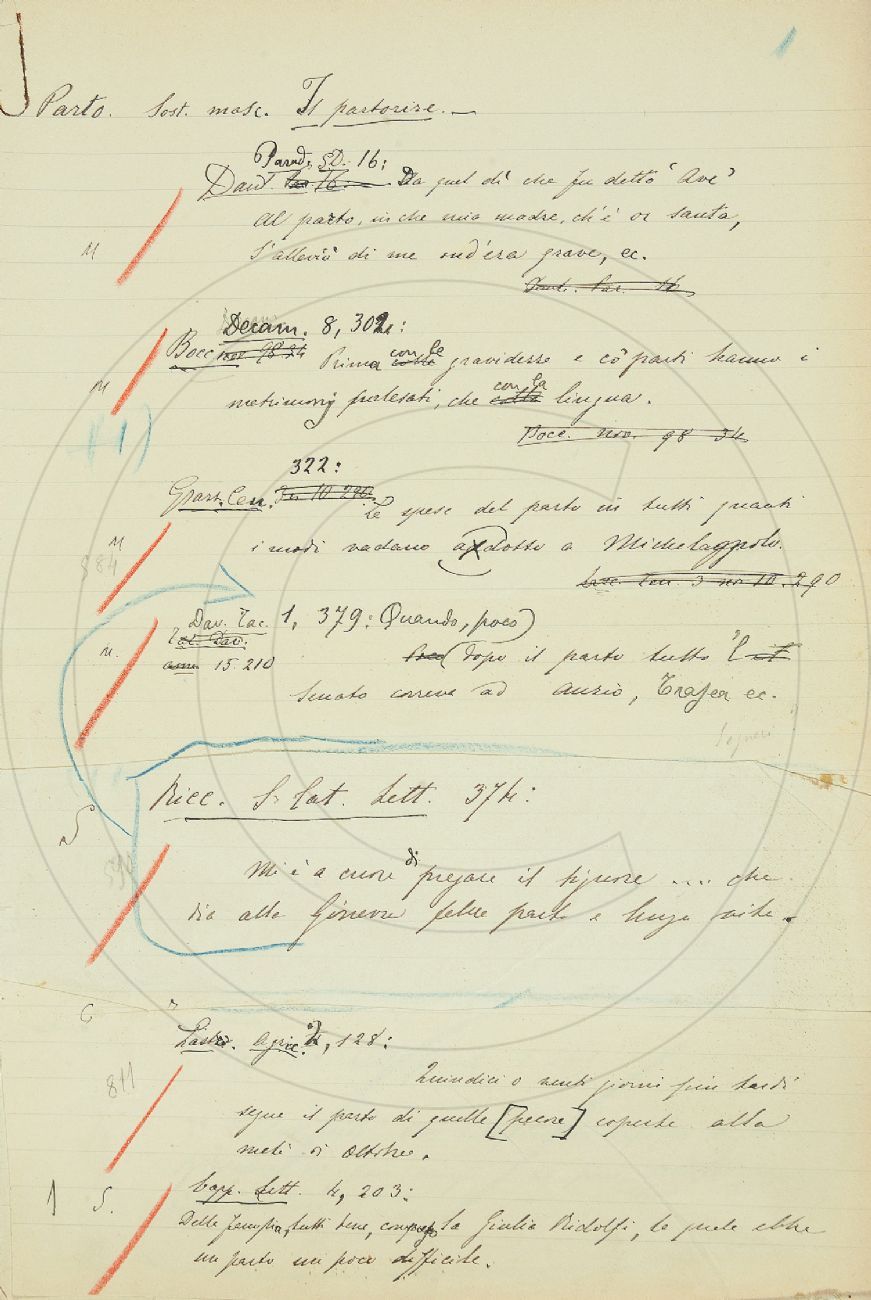 Parto. Sost. masc. Il partorire. —
Parad. 16:
Dant. Da quel dì che fu detto "Ave"
Al parto, in che mia madre, ch'è or santa,
S'alleviò di me ond'era grave, ec.
Dant. Par. 16
Decam. 8, 302:
Bocc. nov. 98 34 Prima con le gravidezze e co' parti hanno i
matrimonj palesati, che con la lingua.
Bocc. nov. 98 34
322:
Grazz. Cen. 3. 10 290 Le spese del parto in tutti quanti
i modi vadano addosso a Michelagnolo.
Lasc. Cen. 3 nov. 10. 290
Dav. Tac. 1, 379: Quando, poco
Tac. Dav.
ann. 15. 210 Poco dopo il parto tutto 'l il
Senato correva ad Anzio, Trasea ec.
Segneri
Ricc. S. Cat. Lett. 374:
Mi è a cuore di pregare il Signore .... che
dia alla Ginevra felice parto e lunga vita.
Lastri. Agric. 2, 128:
811
Quindici o venti giorni più tardi
segue il parto di quelle [pecore] coperte alla
metà di Ottobre.
1 S. Capp. Lett. 4, 203:
Delle famiglia, tutti bene, compresa la Giulia Ridolfi, la quale ebbe
un parto un poco difficile.